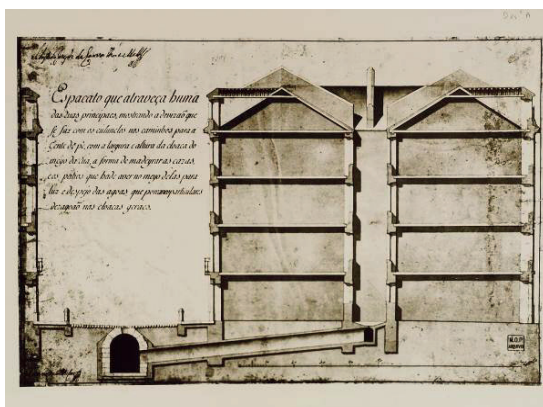 Espacato que atraveça huma
das ruas principaes, mostrando a divezaõ que
se faz com os culunelos nos caminhos para a
Gente de pé, com a largura e altura da cloaca do
meyo da rua, a forma de madeyrar as cazas,
e os pateos que hade aver no meyo delas para
luz e despejo das agoas que por
dezagoaõ nas cloacas geraes.
M.O.P.
ARQUIVO